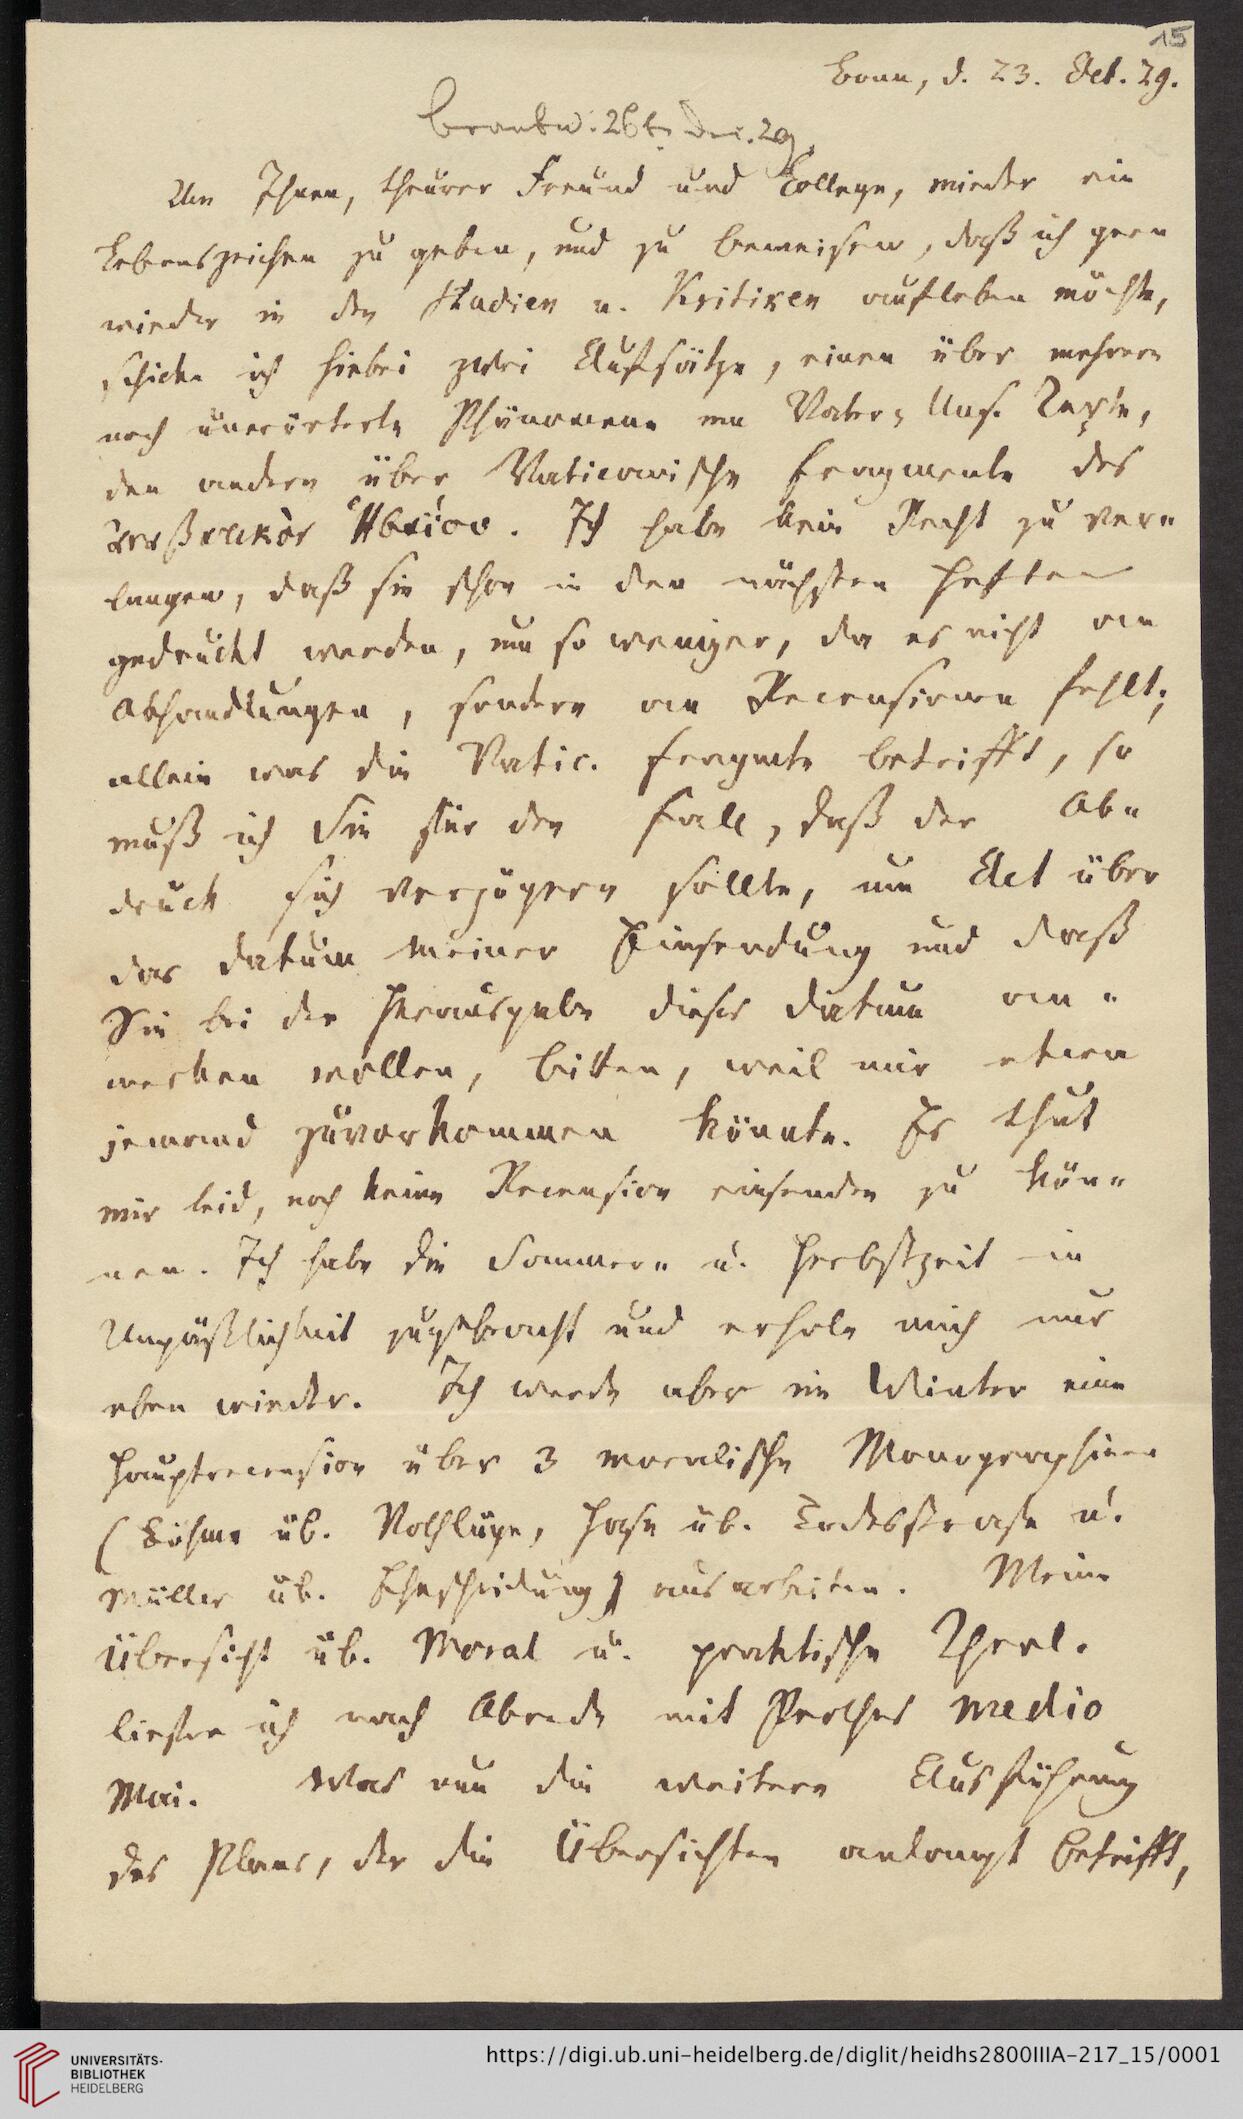 15
Bonn, d. 23. Oct. 29.
Beantw. 26t. Dec. 29.
Um Ihnen, theurer Freund und College, wieder ein
Lebenszeichen zu geben, und zu beweisen, daß ich gern
wieder in den Studien u. Kritiken aufleben möchte,
schicke ich hiebei zwei Aufsätze, einen über mehrere
noch unerörterte Phänomene im Vater-Uns. Texte,
den andern über Vaticanische Fragmente des
Ἡσαίου. Ich habe kein Recht zu ver-
langen, daß sie schon in den nächsten Heften
gedruckt werden, um so weniger, da es nicht an
Abhandlungen, sondern an Recensionen fehlt;
allein was die Vatic. Fragmte betrifft, so
muß ich Sie für den Fall, daß der Ab-
druck sich verzögern sollte, um Act über
das Datum meiner Einsendung und daß
Sie bei der Herausgabe dieses Datum an-
merken wollen, bitten, weil mir etwa
jemand zuvorkommen könnte. Es thut
mir leid, noch keine Recension einsenden zu kön-
nen. Ich habe die Sommer- u. Herbstzeit in
Unpäßlichkeit zugebracht und erhole mich nur
eben wieder. Ich werde aber im Winter eine
Hauptrecension über 3 moralische Monographieen
(Böhme üb. Nothlüge, Hase üb. Todesstrafe u.
Müller üb. Ehescheidung) ausarbeiten. Meine
Übersicht üb. Moral u. praktische Theol.
liefre ich nach Abrede mit Perthes medio
Mai. Was nun die weitere Ausführung
des Plans, der die Übersichten anlangt betrifft,
UNIVERSITÄTS-
BIBLIOTHEK
HEIDELBERG
https://digi.ub.uni-heidelberg.de/diglit/heidhs2800IIIA-217_15/0001